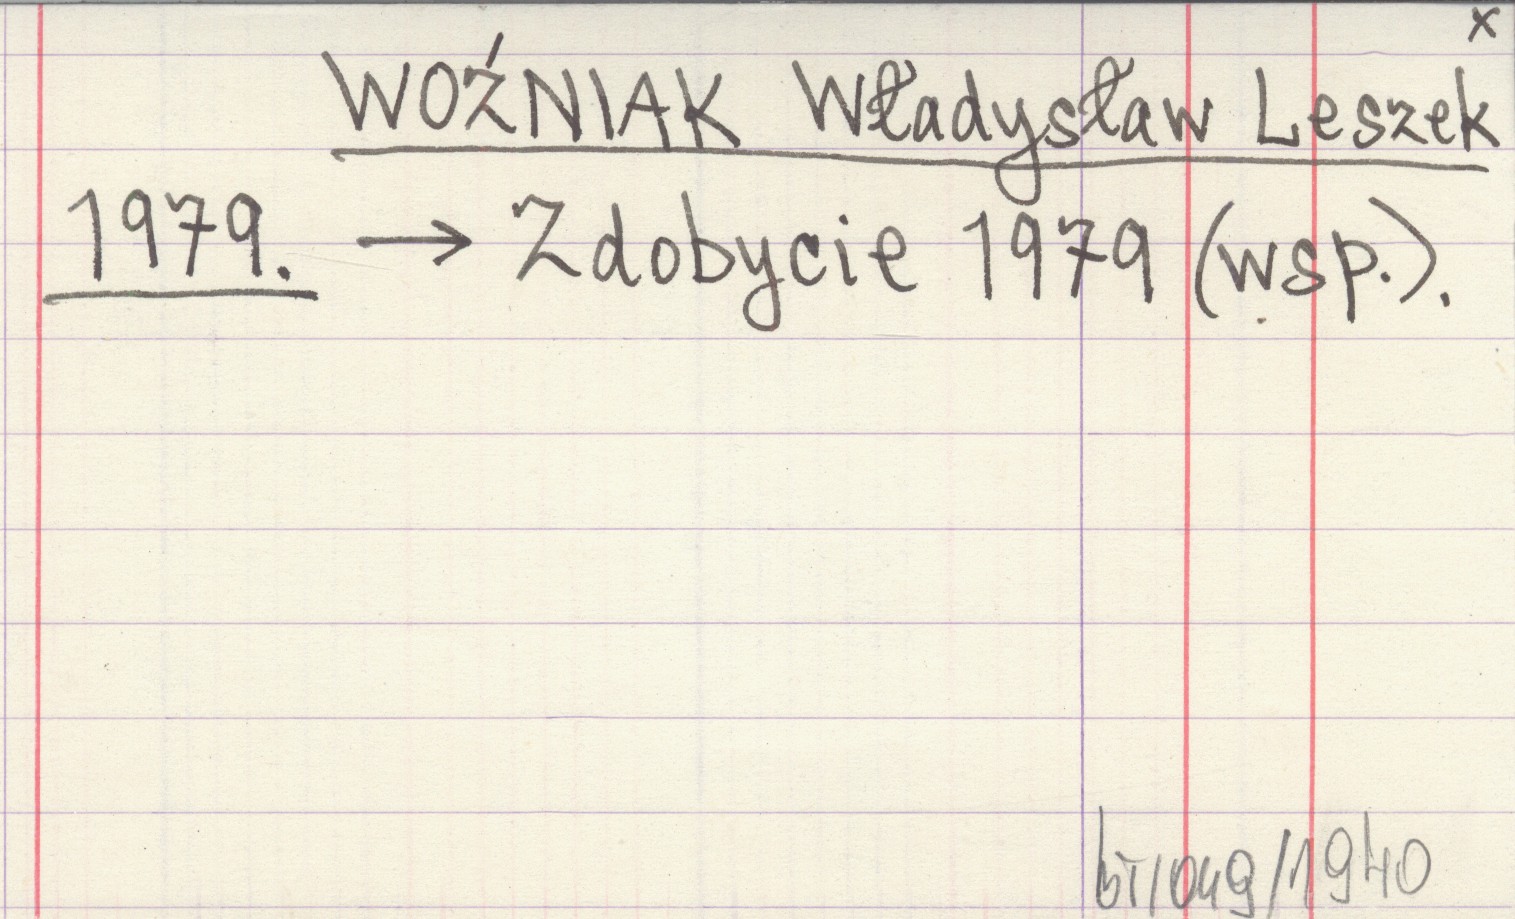 x
WOŹNIAK Władysław Leszek
1979. → Zdobycie 1979 (wsp.).
bT/049/1940